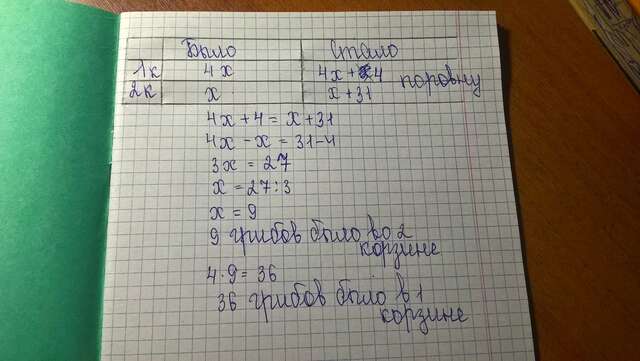 Было Стало
1к 4х 4х+4 поровну
2к х х+31
4х+4=х+31
4х-х=31-4
3х=27
х=27:3
х=9
9 грибов было во 2
корзине
4·9=36
36 грибов было в 1
корзине